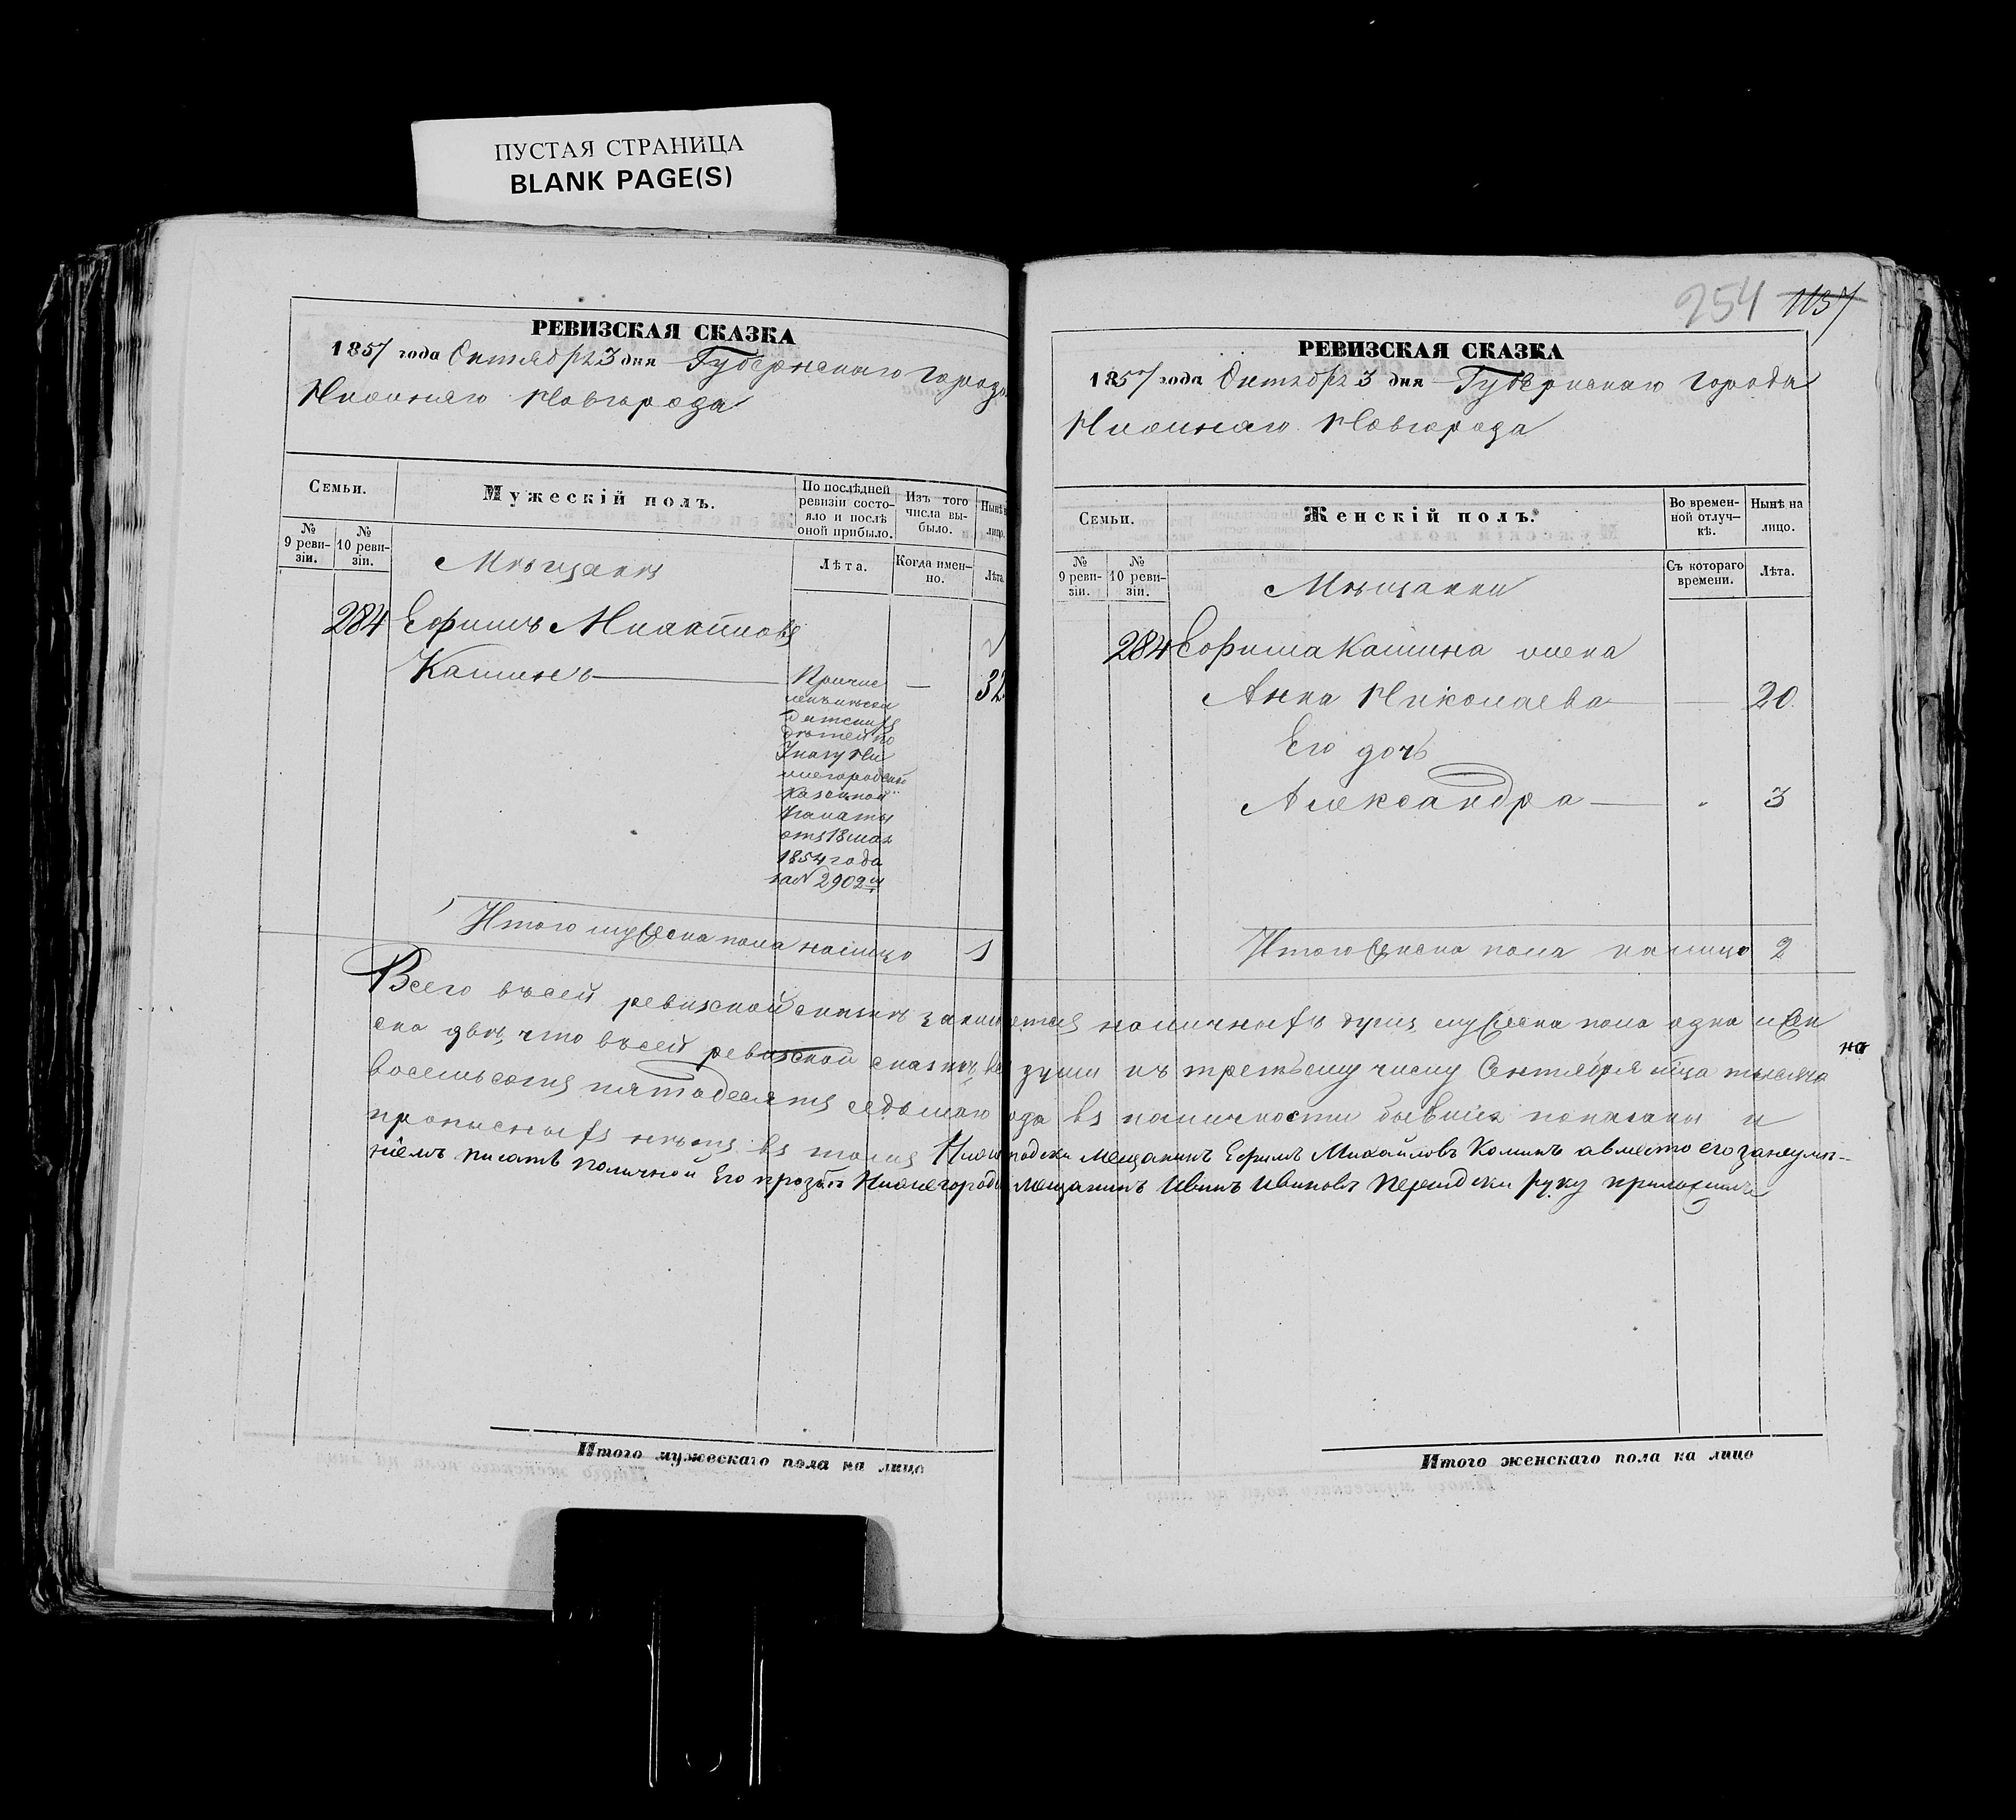 ПУСТАЯ СТРАНИЦА
BLANK PAGE(S)
РЕВИЗСКАЯ СКАЗКА
1857 года Октября 3 дня Губернскаго города
Нижняго Новгорода
Семьи.
Мужескій полъ.
По послѣдней ревизіи состояло и послѣ оной прибыло.
Изъ того числа выбыло.
Нынѣ на лицо.
№ 9 ревизіи.
№ 10 ревизіи.
Лѣта.
Когда именно.
Лѣта.
Мѣщане
284 Ефимъ Михайловъ
Кашинъ — 32
Причис
ленъ изъ
дѣтей по
Указу Ни
жегородской
Казенной
Палаты
отъ 18 мая
1854 года
за № 2902м
Итого мужеска пола налицо 1
Итого мужескаго пола на лицо
254 1137
РЕВИЗСКАЯ СКАЗКА
1857 года Октября 3 дня Губернскаго города
Нижняго Новгорода
Семьи.
Женскій полъ.
Во временной отлучкѣ.
Нынѣ на лицо.
№ 9 ревизіи.
№ 10 ревизіи.
Съ котораго времени.
Лѣта.
Мѣщанки
284 Ефима Кашина жена
Анна Николаева — 20.
Его дочь
Александра — 3
Итого женска пола налицо 2
Всего въ сей ревизской сказкѣ заключается наличныхъ душъ мужеска пола одна и жен
ска двѣ, что въ сей ревизской сказкѣ всѣ души къ третьему числу Октября мца тысяча
восемьсотъ пятьдесятъ седьмаго года въ наличности бывшія показаны и
прописныхъ нѣтъ въ томъ Нижегородски Мещанинъ Ефимъ Михайловъ Кашинъ а вместо его занеумѣ-
ніемъ писать поличной Его прозбѣ Нижегородски мещанинъ Иванъ Ивановъ руку приложилъ
Итого женскаго пола на лицо